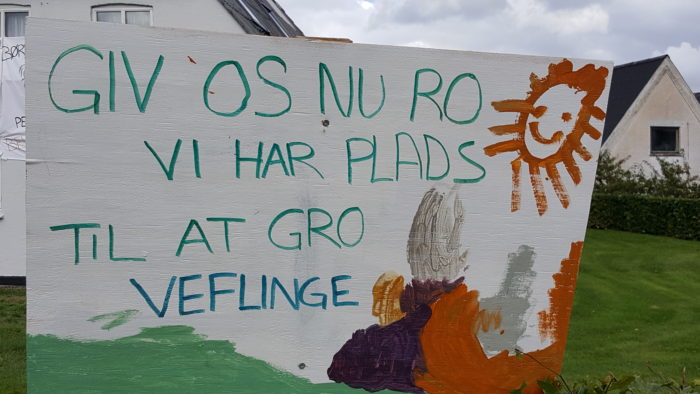 GIV OS NU RO
VI HAR PLADS
TIL AT GRO
VEFLINGE